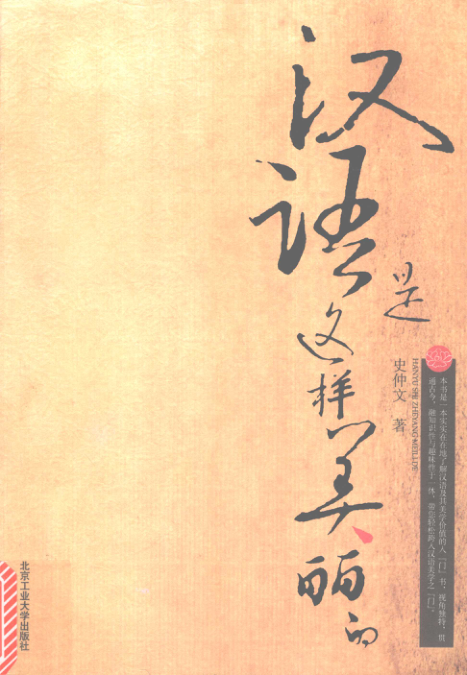 汉语是这样美丽的
史仲文 著
HANYU SHI ZHEYANG MEILI DE
本书是一本实实在在地了解汉语及其美学价值的人“门”书，视角独特，贯
通古今，融知识性与趣味性于一体，带您轻松跨入汉语美学之“门”。
北京工业大学出版社